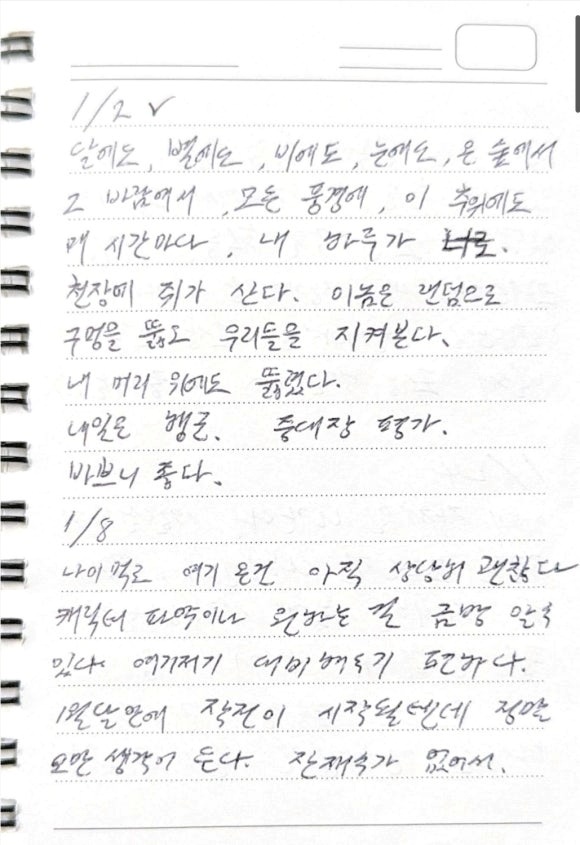 1/2 ✓
달에도, 별에도, 비에도, 눈에도, 온 숲에서
그 바람에서, 모든 풍경에, 이 추위에도
매 시간마다, 내 하루가 너로.
천장에 쥐가 산다. 이놈은 랜덤으로
구멍을 뚫고 우리들을 지켜본다.
내 머리 위에도 뚫렸다.
내일은 행군. 중대장 평가.
바쁘니 좋다.
1/8
나이먹고 여기 온건 아직 상당히 괜찮다
캐릭터 파악이나 원하는 걸 금방 알수
있다. 여기저기 대비해두기 편하다.
1월달 안에 작전이 시작될텐데 정말
오만 생각이 든다. 잔재주가 없어서.